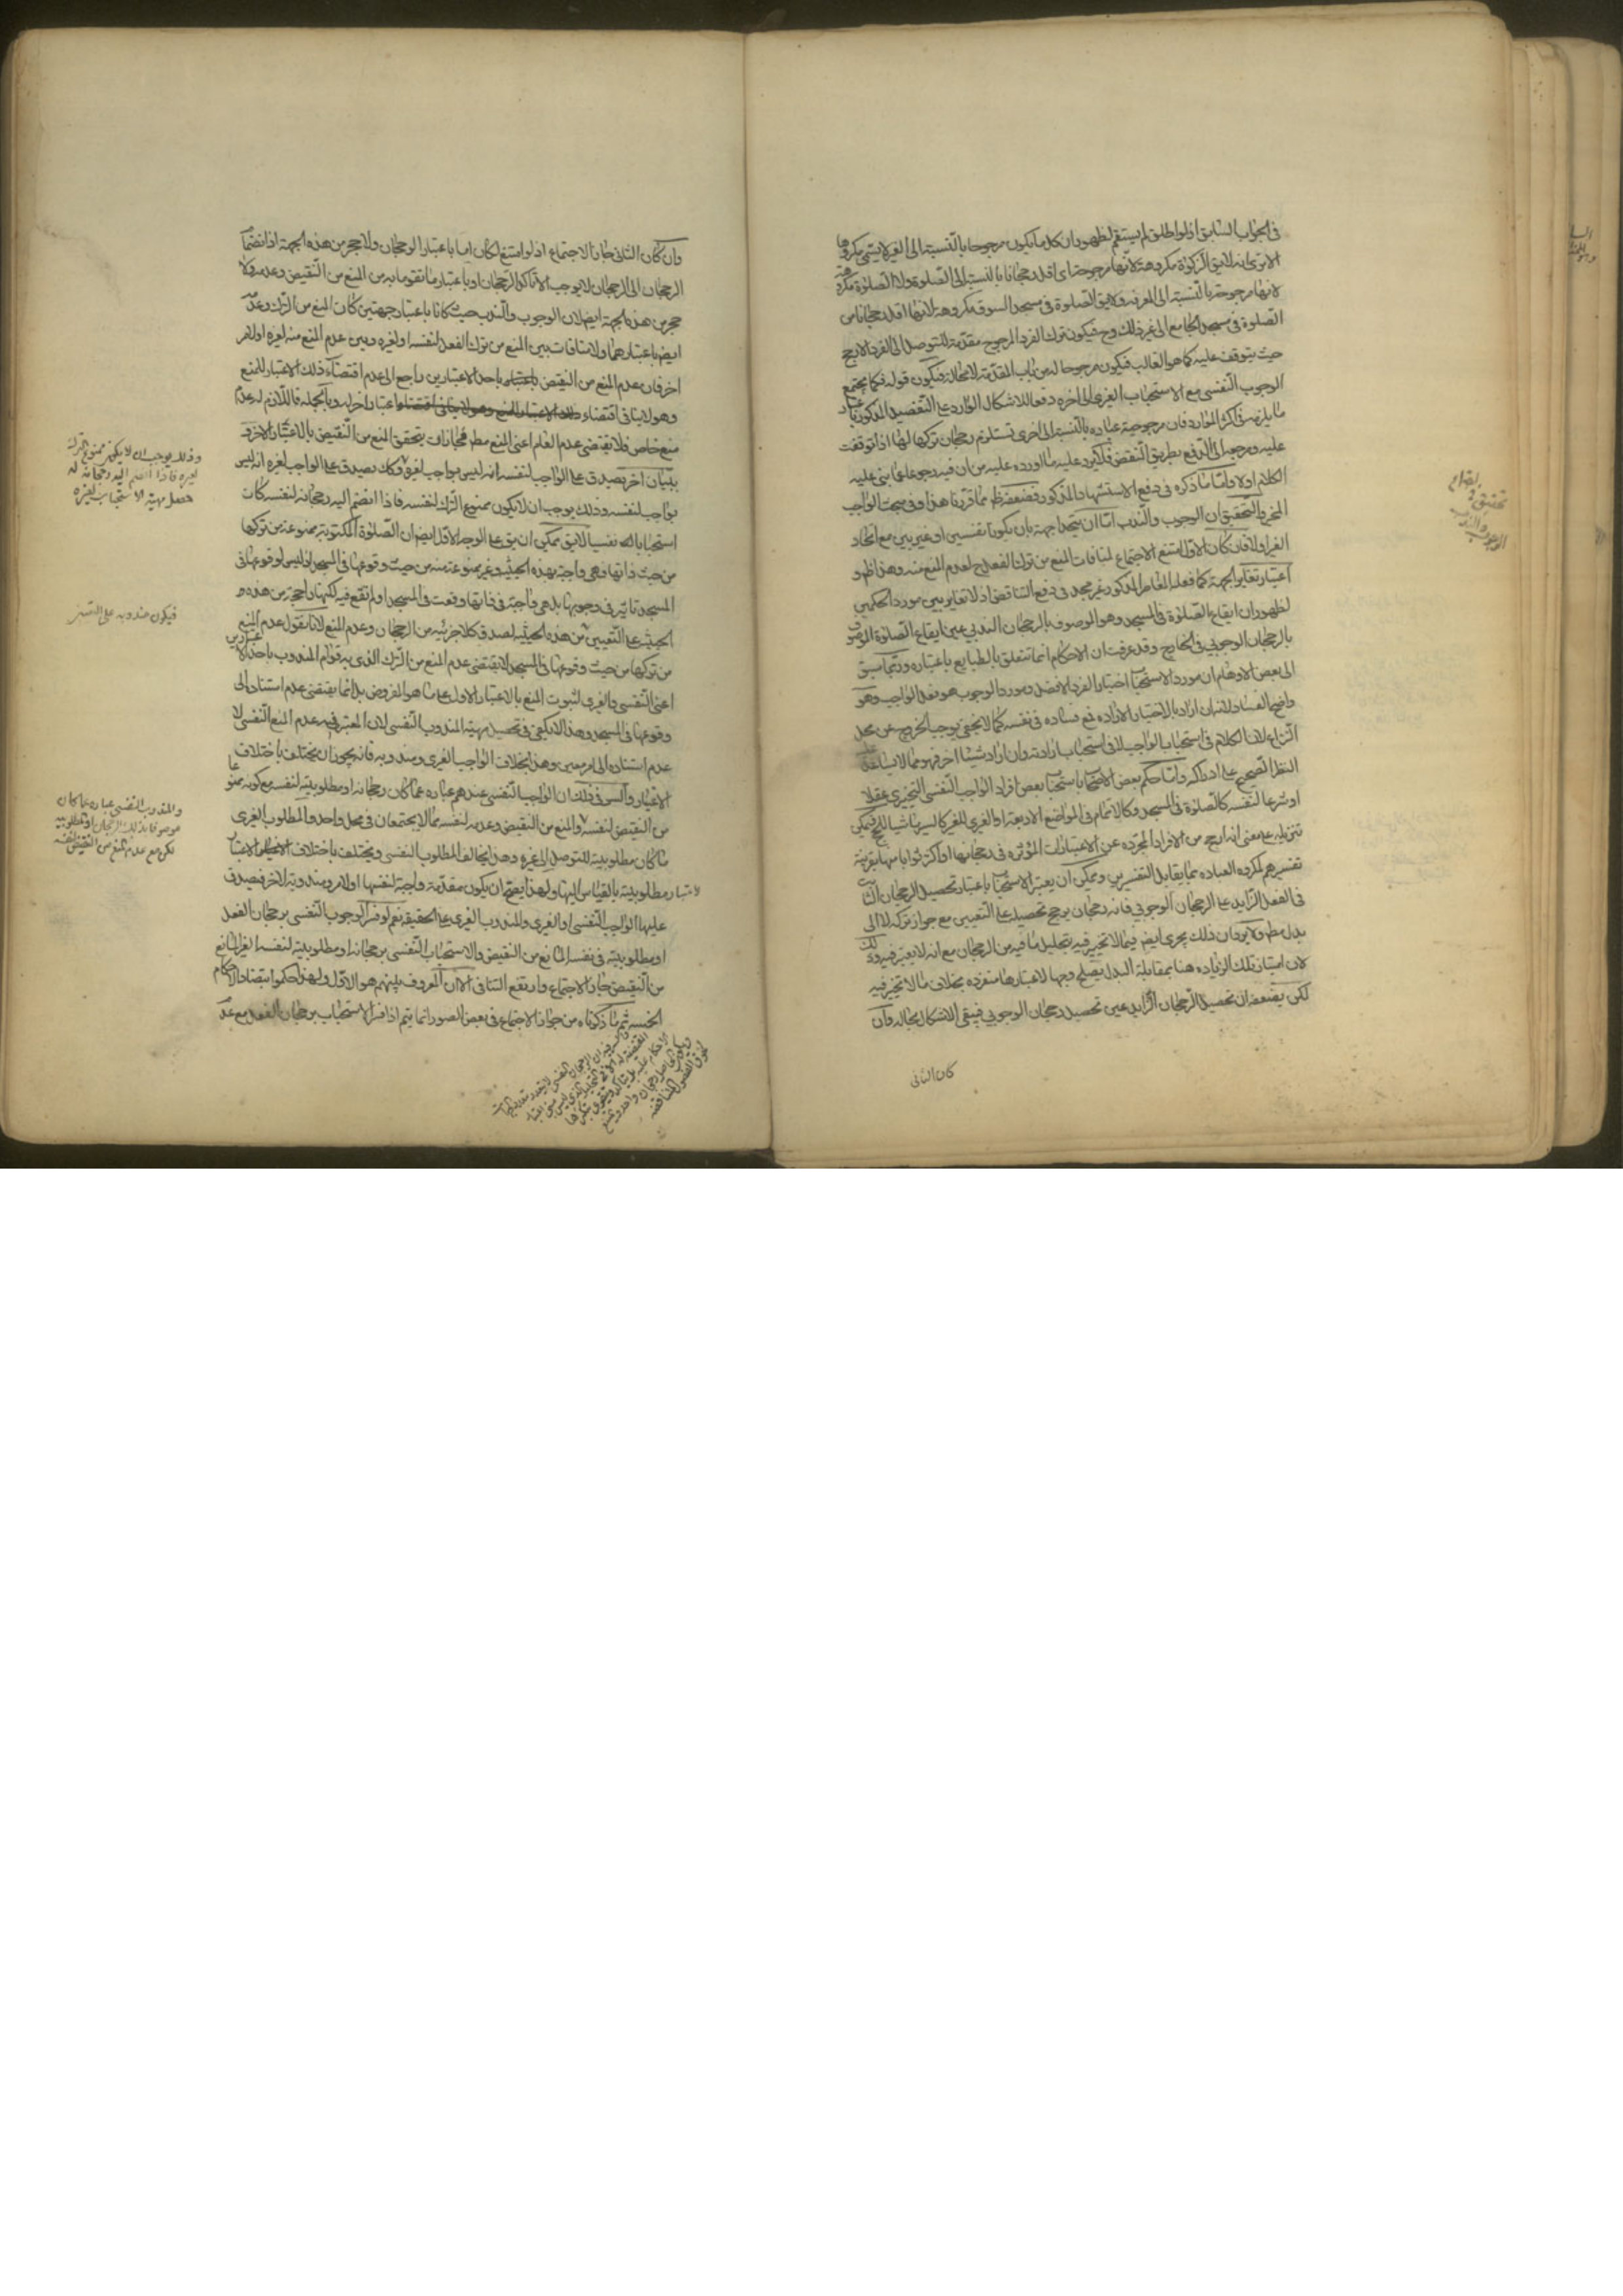 في الجواب السابق اذ لو اطلق لم يستقم لظهور ان كل ما يكون مرجوحا بالنسبة الى الغير لا يسمى مكروها
الا ترى انه لا يق الزكوة مكروهة لانها مرجوحة اى اقل رجحانا بالنسبة الى الصلوة ولا الصلوة مكروهة
لانها مرجوحة بالنسبة الى المعرفة ولا يق الصلوة في مسجد السوق مكروهة لانها اقل رجحانا من
الصلوة في مسجد الجامع الى غير ذلك وح فيكون ترك الفرد المرجوح مقدمة للتوصل الى الفرد الارجح
حيث يتوقف عليه كما هو الغالب فيكون مرجوحا له من باب المقدمة لا محالة فيكون قوله فكما يجتمع
الوجوب النفسي مع الاستحباب الغيرى الى اخره دفعا للاشكال الوارد على التفصيل المذكور باعتبار
ما يلزمه في اكثر الموارد فان مرجوحية عبادة بالنسبة الى اخرى تستلزم رجحان تركها لها اذا توقفت
عليه ومرجعه الى الدفع بطريق النقض فلا يرد عليه ما اورده عليه من ان فيه رجوعا عما بنى عليه
الكلام اولا واما ما ذكره في دفع الاستشهاد المذكور فضعفه ظ مما قررنا هذا وفي مبحث الواجب
المخير والتحقيق ان الوجوب والندب اما ان يتحدا جهة بان يكونا نفسيين او غيريين مع اتحاد
الغير اولا فان كان الاول امتنع الاجتماع لمنافات المنع من ترك الفعل ح لعدم المنع منه وهذا ظ و
اعتبار تغاير الجهة كما فعله الفاضل المذكور غير مجد في دفع التناقض اذ لا تغاير بين مورد الحكمين
لظهور ان ايقاع الصلوة في المسجد وهو الموصوف بالرجحان الندبي عين ايقاع الصلوة الموصوف
بالرجحان الوجوبي في الخارج وقد عرفت ان الاحكام انما تتعلق بالطبايع باعتباره وربما سبق
الى بعض الاوهام ان مورد الاستحباب اختيار الفرد الافضل ومورد الوجوب هو فعل الواجب وهو
واضح الفساد لانه ان اراد بالاختيار الارادة فمع فساده في نفسه كما لا يخفى يوجب الخروج عن محل
النزاع لان الكلام في استحباب الواجب لا في استحباب ارادته وان اراد شيئا اخر فهو مما لا يساعد
النظر الصحيح على ادراكه واما حكم بعض الاصحاب باستحباب بعض افراد الواجب النفسي التخييرى عقلا
او شرعا لنفسه كالصلوة في المسجد وكالاتمام في المواضع الاربعة او الغيرى للغير كالسير ماشيا للحج فيمكن
تنزيله على معنى انه ارجح من الافراد المجردة عن الاعتبارات المؤثرة في رجحانها او اكثر ثوابا منها بقرينة
تفسيرهم لمكروه العبادة بما يقابل التفسيرين ويمكن ان يعتبر الاستحباب باعتبار تحصيل الرجحان الثابت
في الفعل الزايد على الرجحان الوجوبي فانه رجحان يرجح تحصيله على التعيين مع جواز تركه لا الى
بدل مطم ولا يرد ان ذلك يجرى ايض فيما لا تخيير فيه بتحليل ما فيه من الرجحان مع انه لا يعتبر فيه وذلك
لان امتياز تلك الزيادة هنا بمقابلة البدل يصلح وجها لاعتبارها منفردة بخلاف ما لا تخيير فيه
لكن يضعفه ان تحصيل الرجحان الزايد عين تحصيل رجحان الوجوبي فيبقى الاشكال بحاله وان
كان الثاني
تحقيق
الوجوب والندب
وان كان الثاني جاز الاجتماع اذ لو امتنع لكان اما باعتبار الرجحان ولا حجر من هذه الجهة اذ انضمام
الرجحان الى الرجحان لا يوجب الا تاكد الرجحان او باعتبار ما تقوما به من المنع من النقيض وعدمه ولا
حجر من هذه الجهة ايض لان الوجوب والندب حيث كانا باعتبار جهتين كان المنع من الترك وعدمه
ايض باعتبارهما ولا منافات بين المنع من ترك الفعل لنفسه او لغيره وبين عدم المنع منه لغيره او لامر
اخر فان عدم المنع من النقيض باحد الاعتبارين راجع الى عدم اقتضاء ذلك الاعتبار للمنع
وهو لا ينافي اقتضاء اعتبار اخر له وبالجملة فاللازم له عدم
منع خاص فلا يقتضى عدم العام اعني المنع مطم فجاز ان يتحقق المنع من النقيض بالاعتبار الاخر و
ببيان اخر يصدق على الواجب لنفسه انه ليس بواجب لغيره وكك يصدق على الواجب لغيره انه ليس
بواجب لنفسه وذلك يوجب ان لا يكون ممنوع الترك لنفسه فاذا انضم اليه رجحانه لنفسه كان
استحبابا له نفسيا لا يق يمكن ان يق على الوجه الاول ايض ان الصلوة المكتوبة ممنوعة من تركها
من حيث ذاتها وهي واجبة بهذه الحيثية وغير ممنوعة منه من حيث وقوعها في المسجد اذ ليس لوقوعها في
المسجد تاثير في وجوبها بل هي واجبة في ذاتها وقعت في المسجد او لم تقع فيه لكنها راجحة من هذه و
الحيثية على التعيين من هذه الحيثية لصدق كلا جزئيه من الرجحان وعدم المنع لانا نقول عدم المنع
من تركها من حيث وقوعها في المسجد لا يقتضى عدم المنع من الترك الذى به قوام المندوب باحد الاعتبارين
اعني النفسي والغيرى لثبوت المنع بالاعتبار الاول على ما هو المفروض بل انما يقتضى عدم استناده الى
وقوعها في المسجد وهذا لا يكفى في تحصيل مهية المندوب النفسي لان المعتبر فيه عدم المنع النفسي لا
عدم استناده الى امر معين وهذا بخلاف الواجب الغيرى ومندوبه فانه يجوز ان يختلف باختلاف
الاعتبار والسر في ذلك ان الواجب النفسي عندهم عبارة عما كان رجحانه او مطلوبيته لنفسه مع كونه ممنوعا
من النقيض لنفسه والمنع من النقيض وعدمه لنفسه مما لا يجتمعان في محل واحد والمطلوب الغيرى
ما كان مطلوبيته للتوصل الى غيره وهذا يخالف المطلوب النفسي ويختلف باختلاف الاغيار
لاعتبار مطلوبيته بالقياس اليها ولهذا يصح ان يكون مقدمة واجبة لنفسها او لامر ومندوبة لاخر فيصدق
عليها الواجب النفسي او الغيرى والمندوب الغيرى على الحقيقة نعم لو فسر الوجوب النفسي برجحان الفعل
او مطلوبيته في نفسه المانع من النقيض والاستحباب النفسي برجحانه او مطلوبيته لنفسه الغير المانع
من النقيض جاز الاجتماع وارتفع التنافي الا ان المعروف بينهم هو الاول ولهذا حكموا بتضاد الاحكام
الخمسة ثم ما ذكرناه من جواز الاجتماع في بعض الصور انما يتم اذا فسر الاستحباب برجحان الفعل مع عدم
وذلك يوجب ان لا يكون ممنوع الترك
لغيره فاذا انضم اليه رجحانه له
حصل مهية الاستحباب لغيره
فيكون مندوبه على التعيين
والمندوب النفسي عبارة عما كان
موصوفا بذلك الرجحان او المطلوبية
لكن مع عدم المنع من النقيض لنفسه